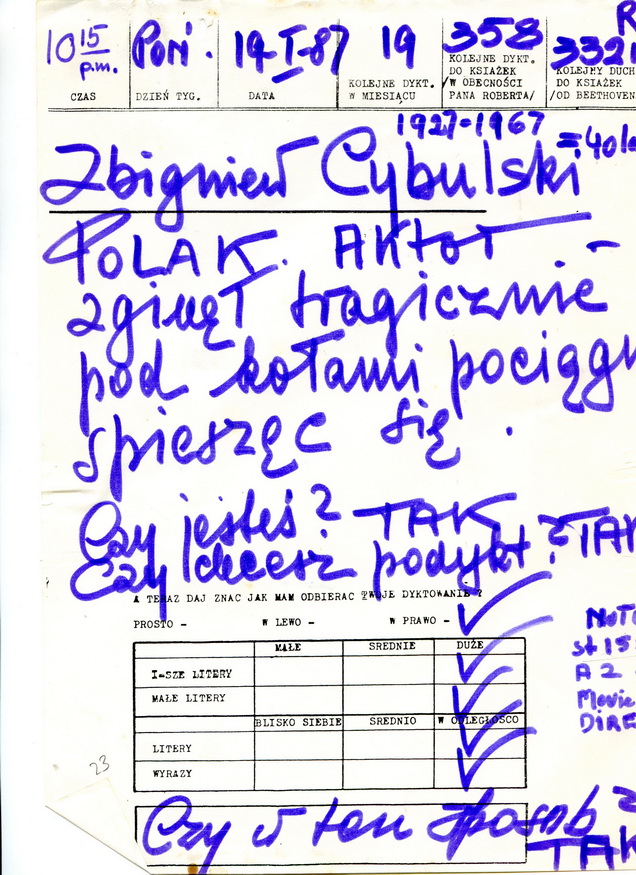 10 15 p.m. Pon. 19-I-87 19 358 3321
CZAS DZIEŃ TYG. DATA KOLEJNE DYKT. W MIESIĄCU KOLEJNE DYKT. DO KSIAŻEK /W OBECNOŚCI PANA ROBERTA/ KOLEJNY DUCH DO KSIAŻEK /OD BEETHOVEN
1927-1967 = 40 la
Zbigniew Cybulski
POLAK. AKtor -
zginęł tragicznie
pod kołami pociągu
spiesząc się.
Czy jesteś? TAK
Czy chcesz podykt? TAK
A TERAZ DAJ ZNAC JAK MAM ODBIERAC TWOJE DYKTOWANIE ?
PROSTO - W LEWO - W PRAWO - ✓
MAŁE SREDNIE DUŻE
I-SZE LITERY ✓
MAŁE LITERY ✓
BLISKO SIEBIE SREDNIO W ODLEGŁOSCO
LITERY ✓
WYRAZY ✓
st 15
A 2
Movie
DIRE
23
Czy w ten sposób?
TAK